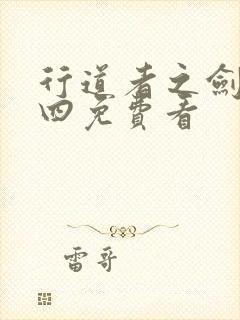 行道者之劍
四免費看
雷哥